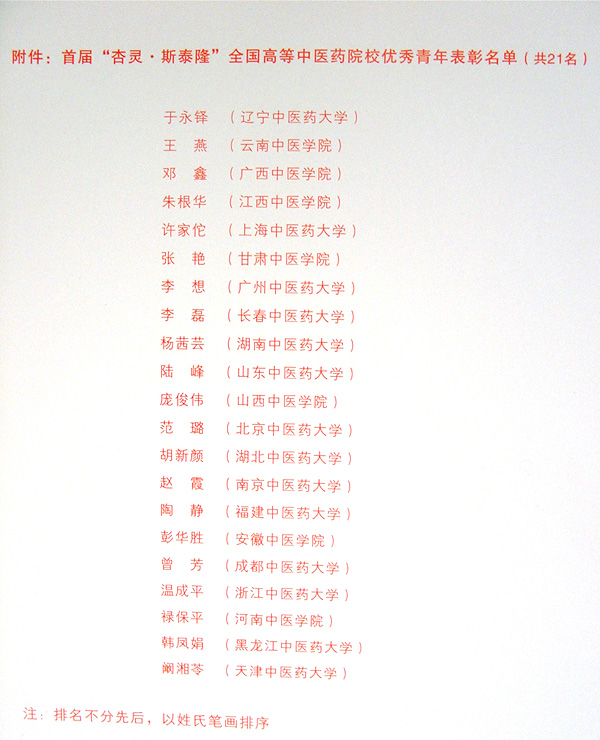 附件：首届“杏灵·斯泰隆”全国高等中医药院校优秀青年表彰名单（共21名）
于永铎 （辽宁中医药大学）
王 燕 （云南中医学院）
邓 鑫 （广西中医学院）
朱根华 （江西中医学院）
许家佗 （上海中医药大学）
张 艳 （甘肃中医学院）
李 想 （广州中医药大学）
李 磊 （长春中医药大学）
杨茜芸 （湖南中医药大学）
陆 峰 （山东中医药大学）
庞俊伟 （山西中医学院）
范 璐 （北京中医药大学）
胡新颜 （湖北中医药大学）
赵 霞 （南京中医药大学）
陶 静 （福建中医药大学）
彭华胜 （安徽中医学院）
曾 芳 （成都中医药大学）
温成平 （浙江中医药大学）
禄保平 （河南中医学院）
韩凤娟 （黑龙江中医药大学）
阚湘苓 （天津中医药大学）
注：排名不分先后，以姓氏笔画排序